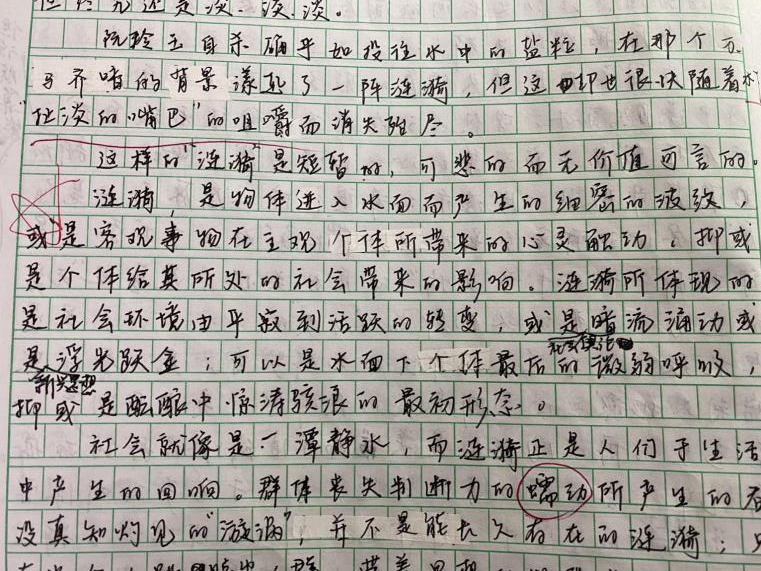 还是淡、淡、淡。
阮玲玉自杀确乎如投注水中的盐粒，在那个万
马齐喑的背景漾起了一阵涟漪，但这却也很快随着水
"扯淡的嘴巴"的咀嚼而消失殆尽。
这样的"涟漪"是短暂的，可悲的而无价值可言的。
涟漪，是物体进入水面而产生的细密的波纹，
或是客观事物在主观个体所带来的心灵触动，抑或
是个体给其所处的社会带来的影响。涟漪所体现的
是社会环境由平寂到活跃的转变，或是暗流涌动或
是浮光跃金；可以是水面下个体最后的微弱呼吸，
新思想
抑或是酝酿中惊涛骇浪的最初形态。
社会就像是一潭静水，而涟漪正是人们于生活
中产生的回响。群体丧失判断力的蠕动所产生的
没真知灼见的"漩涡"，并不是能长久存在的涟漪；